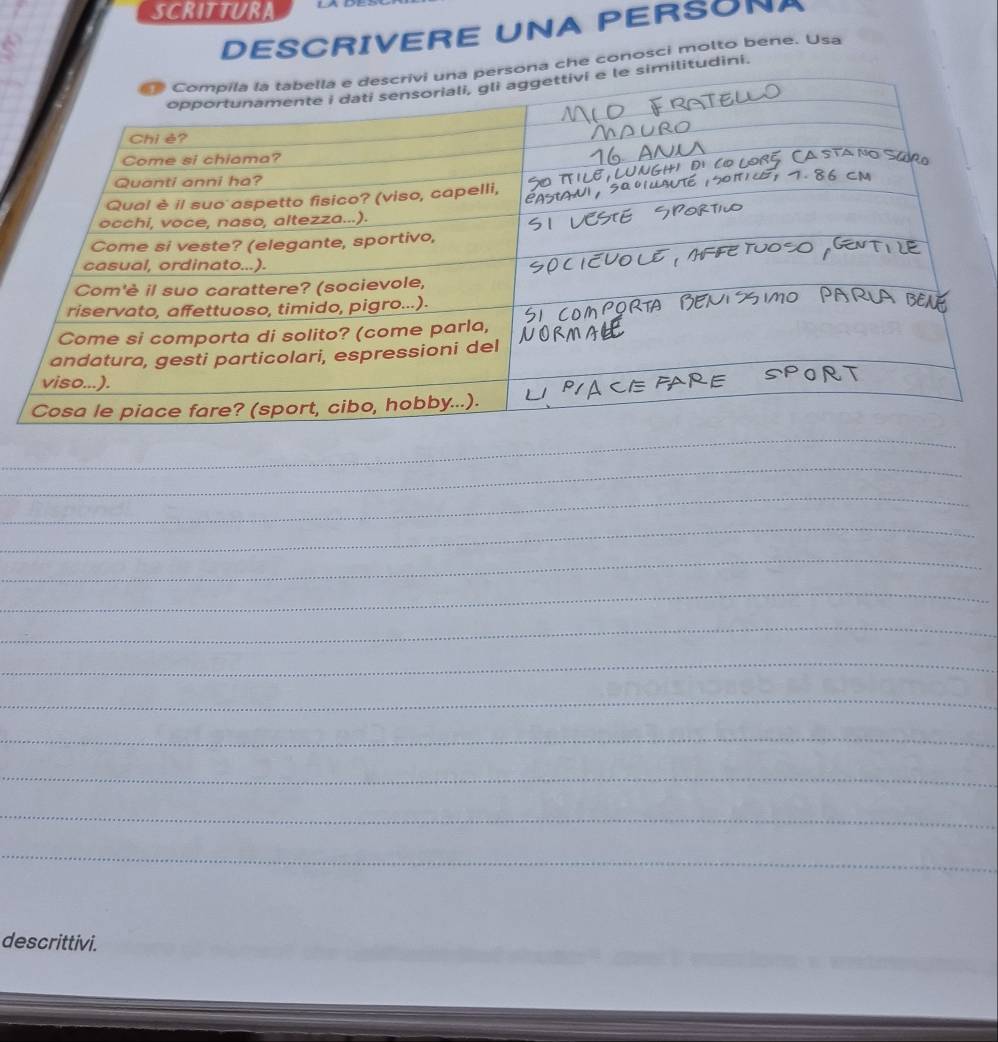 SCRITTURA
DESCRIVERE UNA PERSONA
1 Compila la tabella e descrivi una persona che conosci molto bene. Usa
opportunamente i dati sensoriali, gli aggettivi e le similitudini.
Chi è?
MIO FRATELLO
Come si chiama?
MAURO
Quanti anni ha?
16 ANNI
Qual è il suo aspetto fisico? (viso, capelli,
occhi, voce, naso, altezza...).
SOTTILE, LUNGHI DI COLORE CASTANO SCURO
CASTANI, SQUILLANTE, SOTTILE, 1.86 CM
Come si veste? (elegante, sportivo,
casual, ordinato...).
SI VESTE SPORTIVO
Com'è il suo carattere? (socievole,
riservato, affettuoso, timido, pigro...).
SOCIEVOLE, AFFETUOSO, GENTILE
Come si comporta di solito? (come parla,
andatura, gesti particolari, espressioni del
viso...).
SI COMPORTA BENISSIMO PARLA BENE
NORMALE
Cosa le piace fare? (sport, cibo, hobby...).
LI PIACE FARE SPORT
descrittivi.